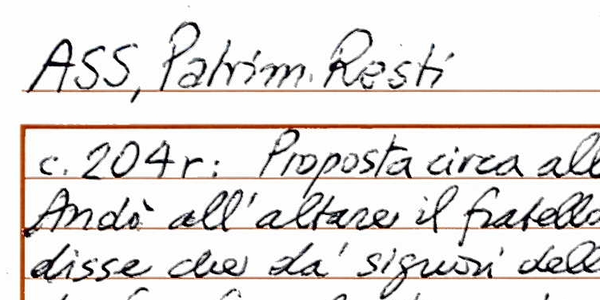 ASS, Patrim. Resti
c. 204r: Proposta circa all
Andò all'altare il fratello
disse che da' signori dell